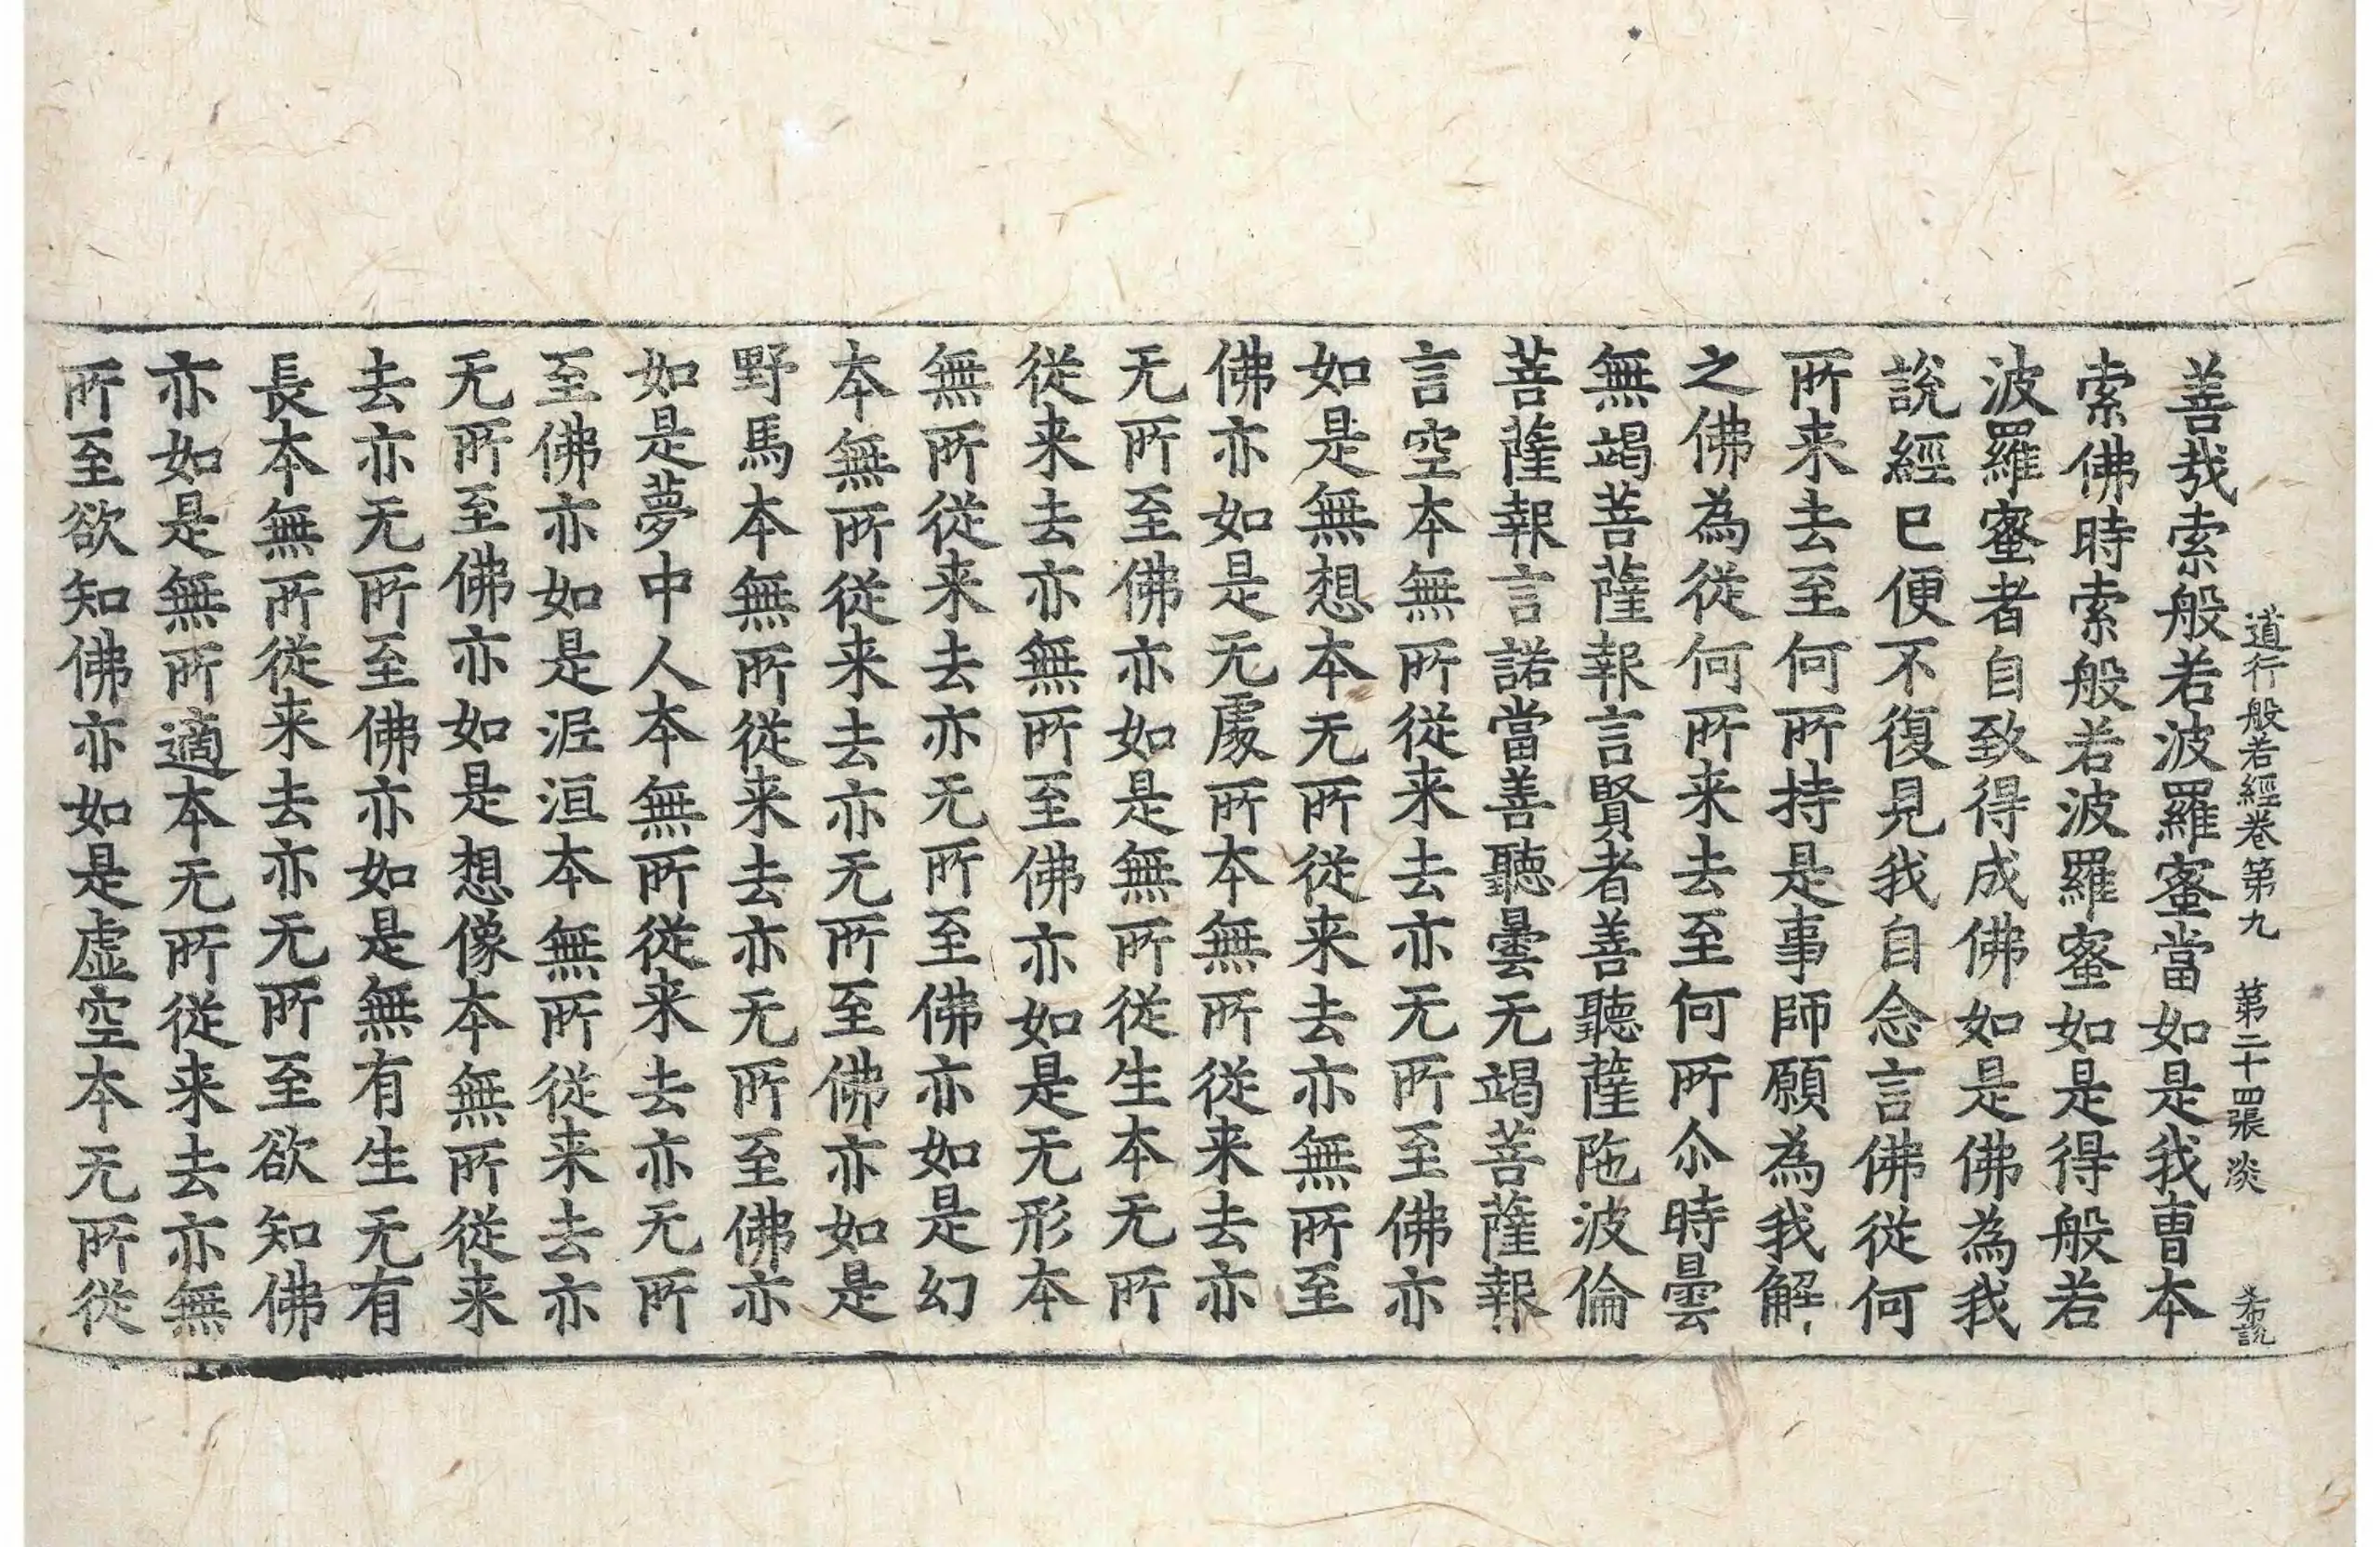 道行般若經卷第九　第二十四張　淡　希詵
善㦲索般若波羅蜜當如是我曹本
索佛時索般若波羅蜜如是得般若
波羅蜜者自致得成佛如是佛為我
說經已便不復見我自念言佛從何
所来去至何所持是事師願為我解
之佛為從何所来去至何所尒時曇
無竭菩薩報言賢者善聽薩陁波倫
菩薩報言諾當善聽曇无竭菩薩報
言空本無所從来去亦无所至佛亦
如是無想本无所從来去亦無所至
佛亦如是无處所本無所從来去亦
无所至佛亦如是無所從生本无所
從来去亦無所至佛亦如是无形本
無所從来去亦无所至佛亦如是幻
本無所從来去亦无所至佛亦如是
野馬本無所從来去亦无所至佛亦
如是夢中人本無所從来去亦无所
至佛亦如是泥洹本無所從来去亦
无所至佛亦如是想像本無所從来
去亦无所至佛亦如是無有生无有
長本無所從来去亦无所至欲知佛
亦如是無所適本无所從来去亦無
所至欲知佛亦如是虛空本无所從